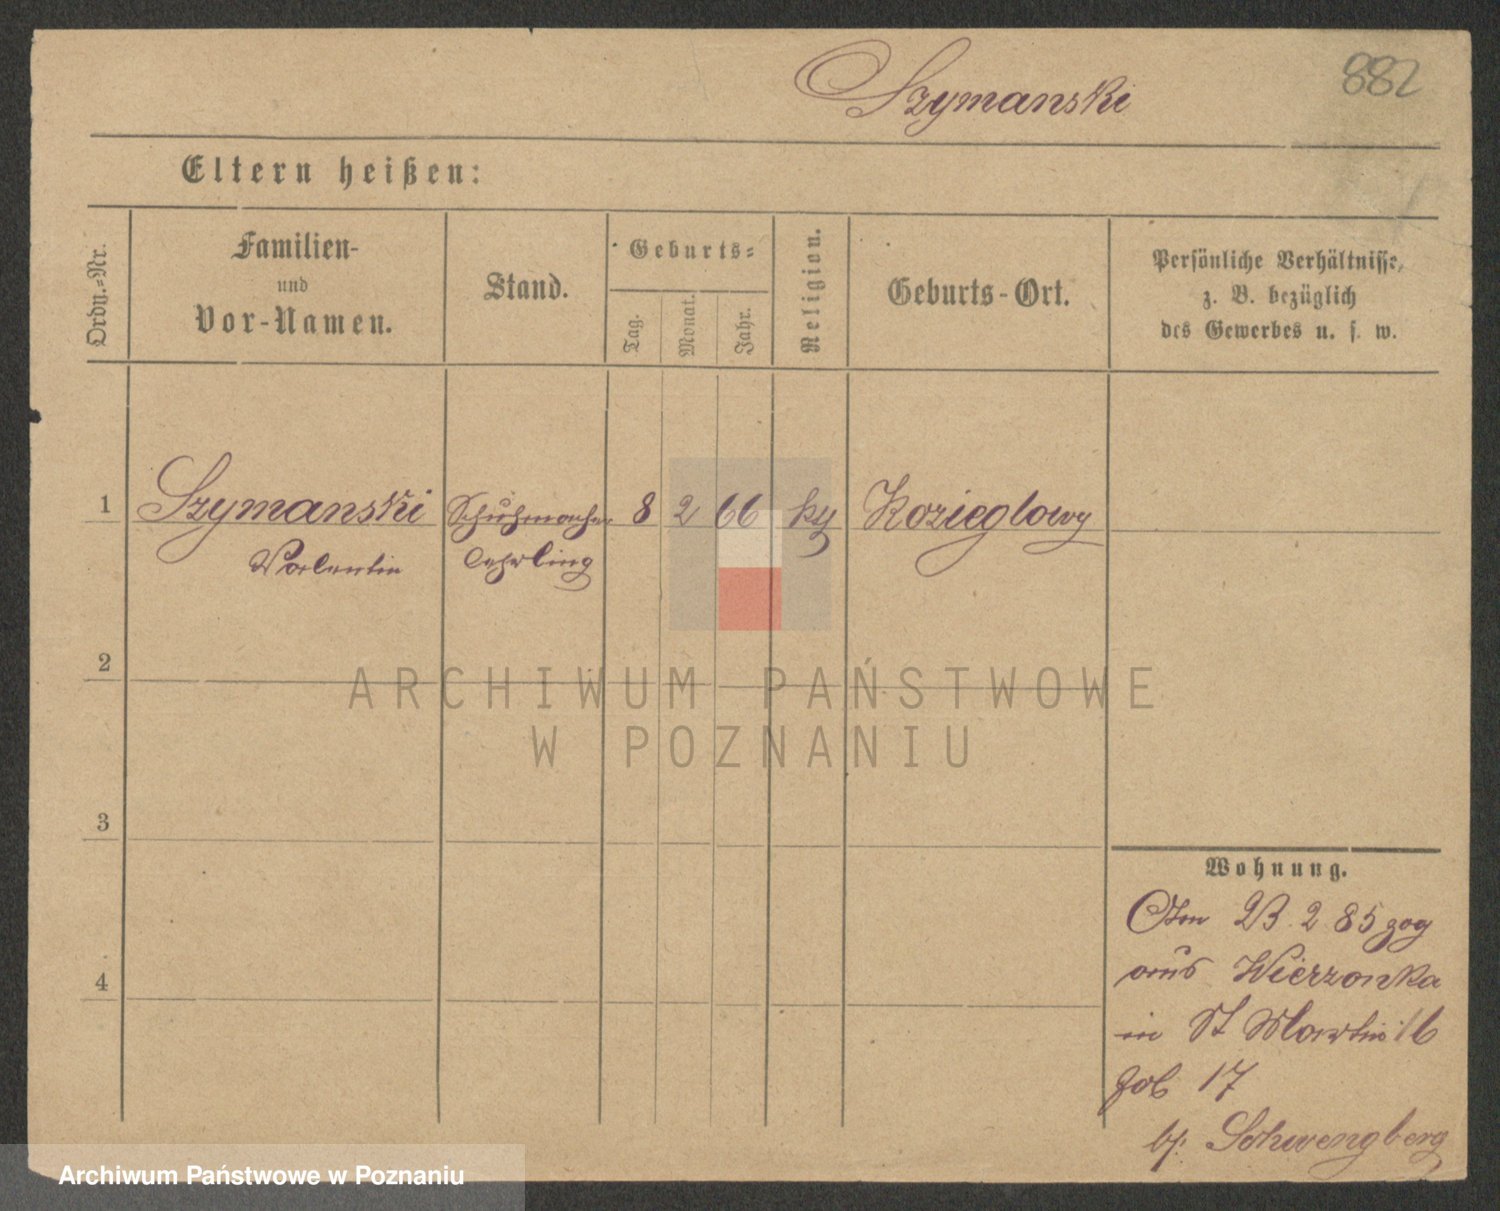 882
Szymanski
Eltern heißen:
Ordn.-Nr.
Familien-
und
Vor-Namen.
Stand.
Geburts-
Tag.
Monat.
Jahr.
Religion.
Geburts-Ort.
Persönliche Verhältnisse,
z. B. bezüglich
des Gewerbes u. s. w.
1 Szymanski Schuhmacher 8 2 66 Kozieglowy
Valentin Lehrling
2
3
4
Wohnung.
23 2 85 zog
aus Wierzonka
in St Martin 16
17
b/ Schwengberg
ARCHIWUM PAŃSTWOWE
W POZNANIU
Archiwum Państwowe w Poznaniu